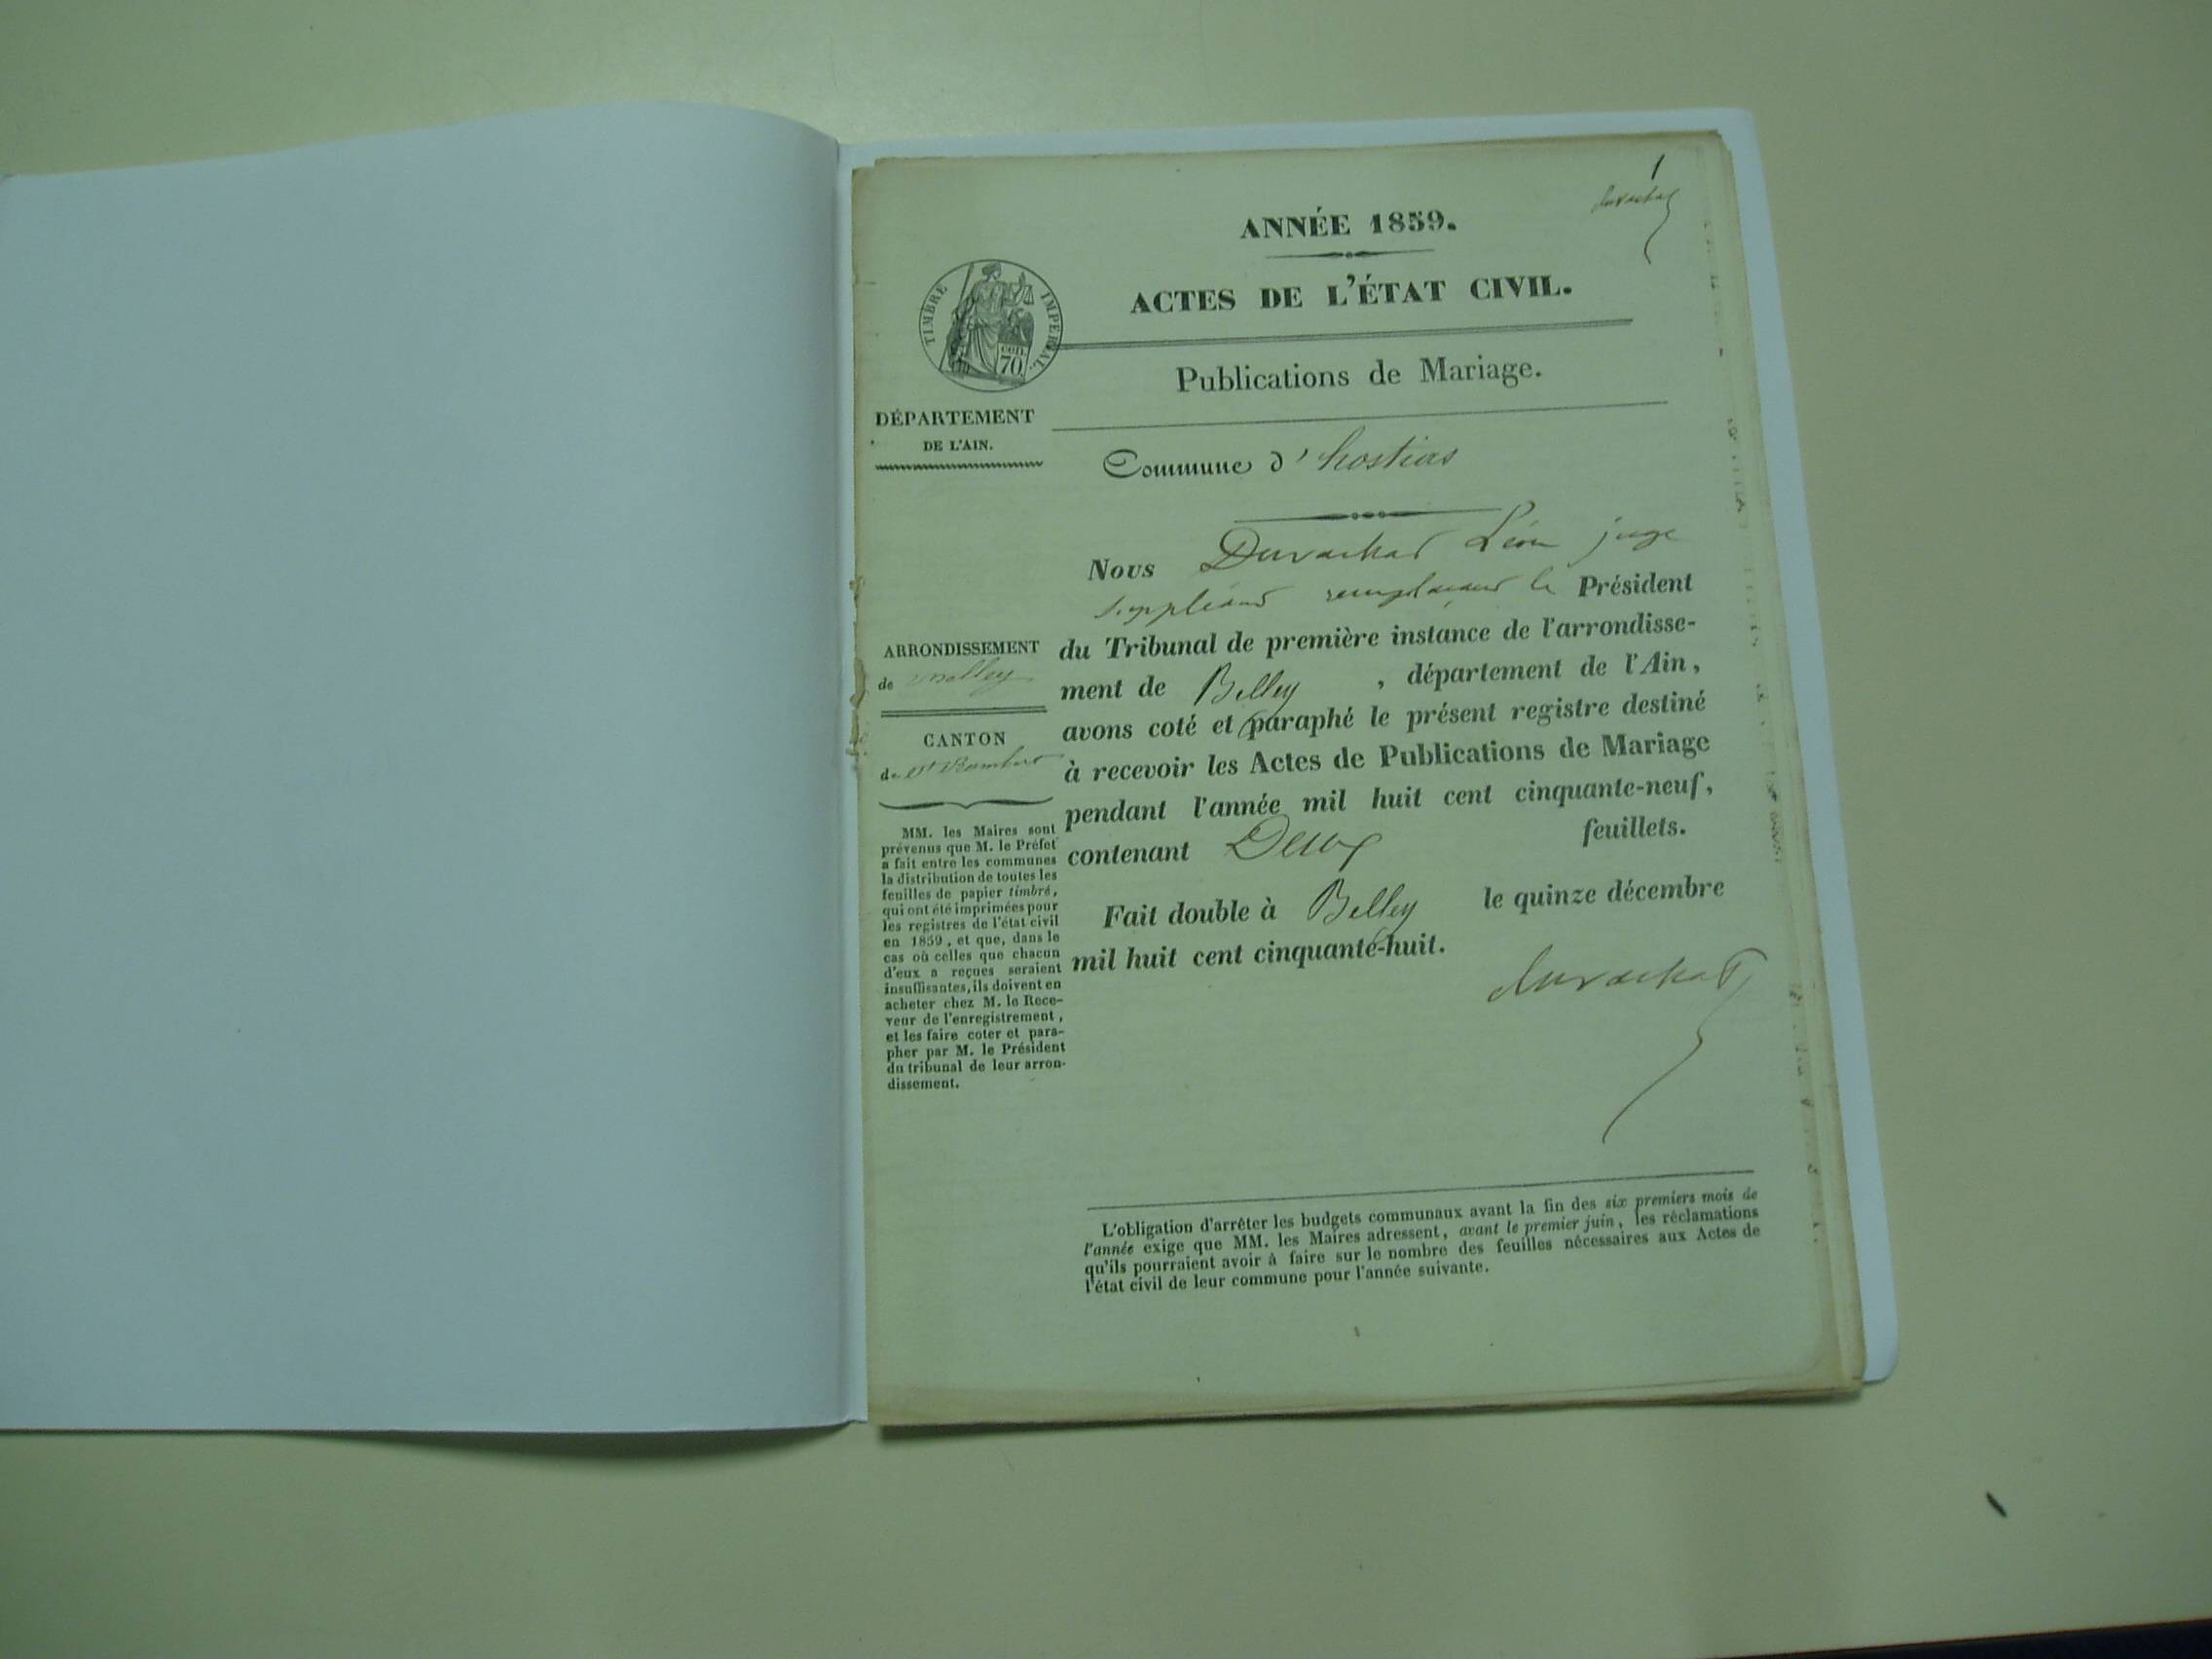 1
ANNÉE 1859.
ACTES DE L'ÉTAT CIVIL.
TIMBRE IMPERIAL.
CEN. 70
Publications de Mariage.
DÉPARTEMENT
DE L'AIN.
Commune d'hostias
Nous Durachat Léon juge
suppléant remplaçant le Président
du Tribunal de première instance de l'arrondisse-
ment de Belley , département de l'Ain,
avons coté et paraphé le présent registre destiné
à recevoir les Actes de Publications de Mariage
pendant l'année mil huit cent cinquante-neuf,
contenant Deux feuillets.
Fait double à Belley le quinze décembre
mil huit cent cinquante-huit.
Durachat
ARRONDISSEMENT
de Belley
CANTON
de St Rambert
MM. les Maires sont
prévenus que M. le Préfet
a fait entre les communes
la distribution de toutes les
feuilles de papier timbré,
qui ont été imprimées pour
les registres de l'état civil
en 1859, et que, dans le
cas où celles que chacun
d'eux a reçues seraient
insuffisantes, ils doivent en
acheter chez M. le Rece-
veur de l'enregistrement,
et les faire coter et para-
pher par M. le Président
du tribunal de leur arron-
dissement.
L'obligation d'arrêter les budgets communaux avant la fin des six premiers mois de
l'année exige que MM. les Maires adressent, avant le premier juin, les réclamations
qu'ils pourraient avoir à faire sur le nombre des feuilles nécessaires aux Actes de
l'état civil de leur commune pour l'année suivante.